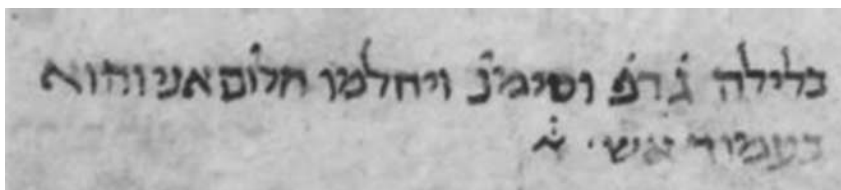 בלילה ג̇ ר̇פ̇ וסימ̇נ̇ ויחלמו חלום אני והוא
בעמוד אש ·